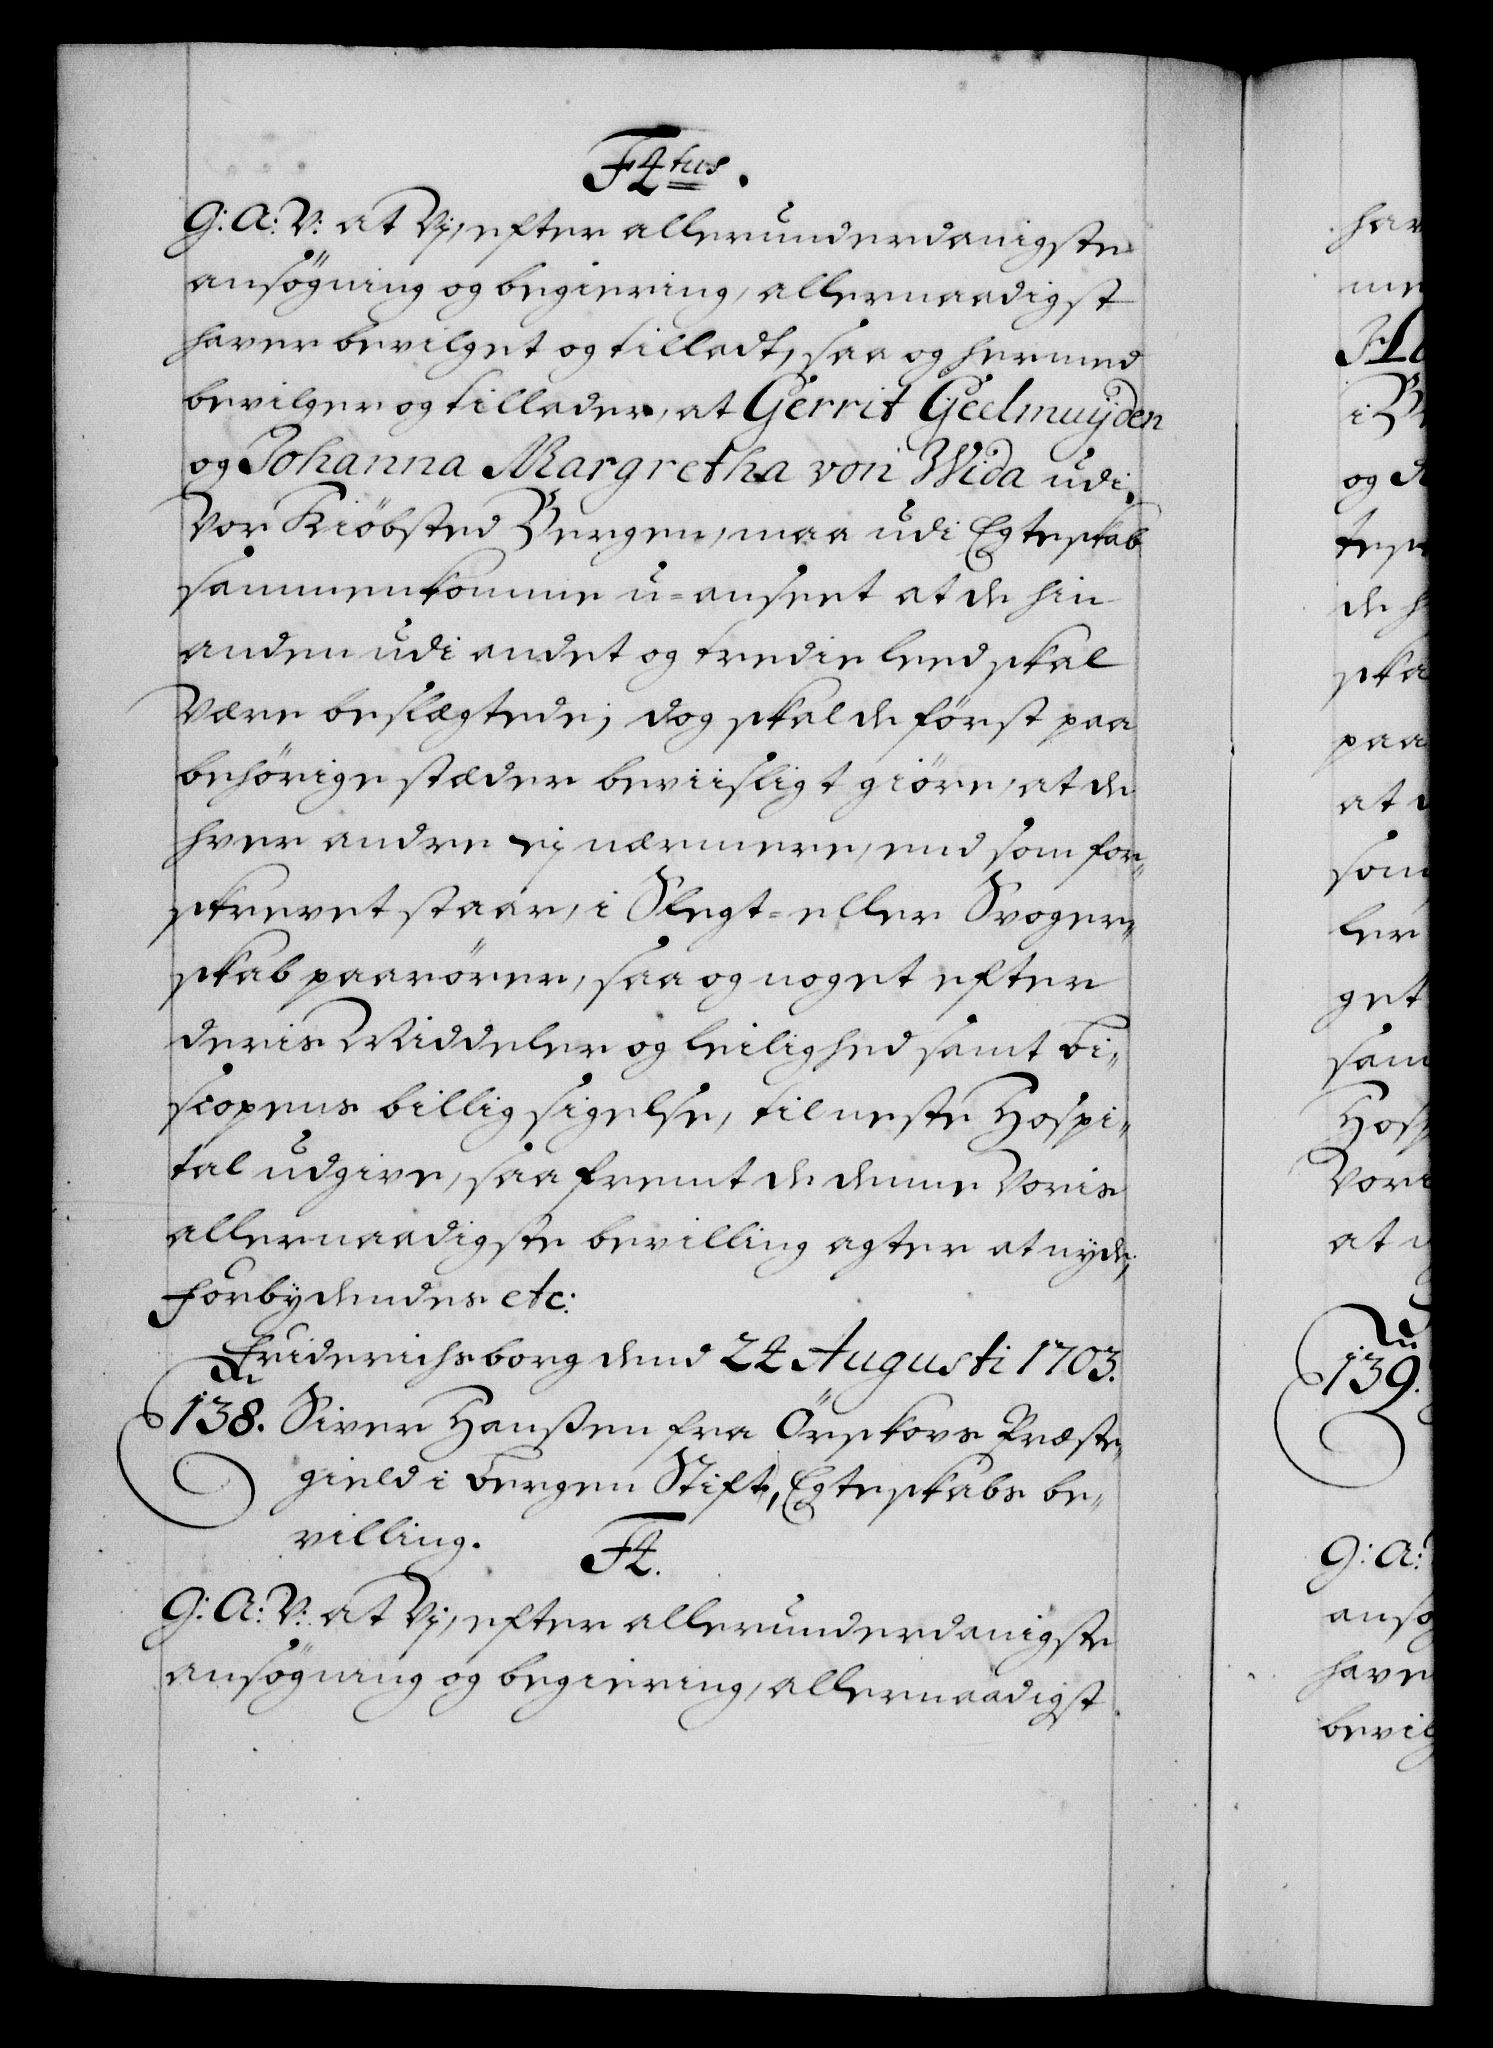 F4tus.
G: A: V: at Vj, efter allerunderdanigste
ansögning og begiering, allernaadigst
haver bevilget og tilladt, saa og hermed
bevilger og tillader, at Gerrit Geelmuÿden
og Johanna Margretha von Wida udi
Vor Kiöbsted Bergen, maa udi Egteskab
sammenkomme u-anseet at de hin
anden udi andet og tredie leed skal
være beslægtede; dog skal de först paa
behörige stæder beviisligt giöre, at de
hver andre ej nærmere, end som for„
skrevet staar, i Slegt- eller Svoger„
skab paarörer, saa og noget efter
deris Middeler og leilighed samt Bi„
scopens billig sigelse, til neste Hospi„
tal udgive, saa fremt de denne Voris
allernaadigste bevilling agter at nyde;
Forbydendes etc:
Friderichsborg dend 24 Augusti 1703.
138. Siver Hanßen fra Örskovs Præste„
gield i Bergen Stift, Egteskabs be„
villing.
F4.
G: A: V: at Vj, efter allerunderdanigste
ansögning og begiering, allernaadigst
hav
me
i B
og
de h
ska
paa
at d
som
ler
get
sam
Hosp
Vori
at n
139.
G: A:
ansö
have
bevilg